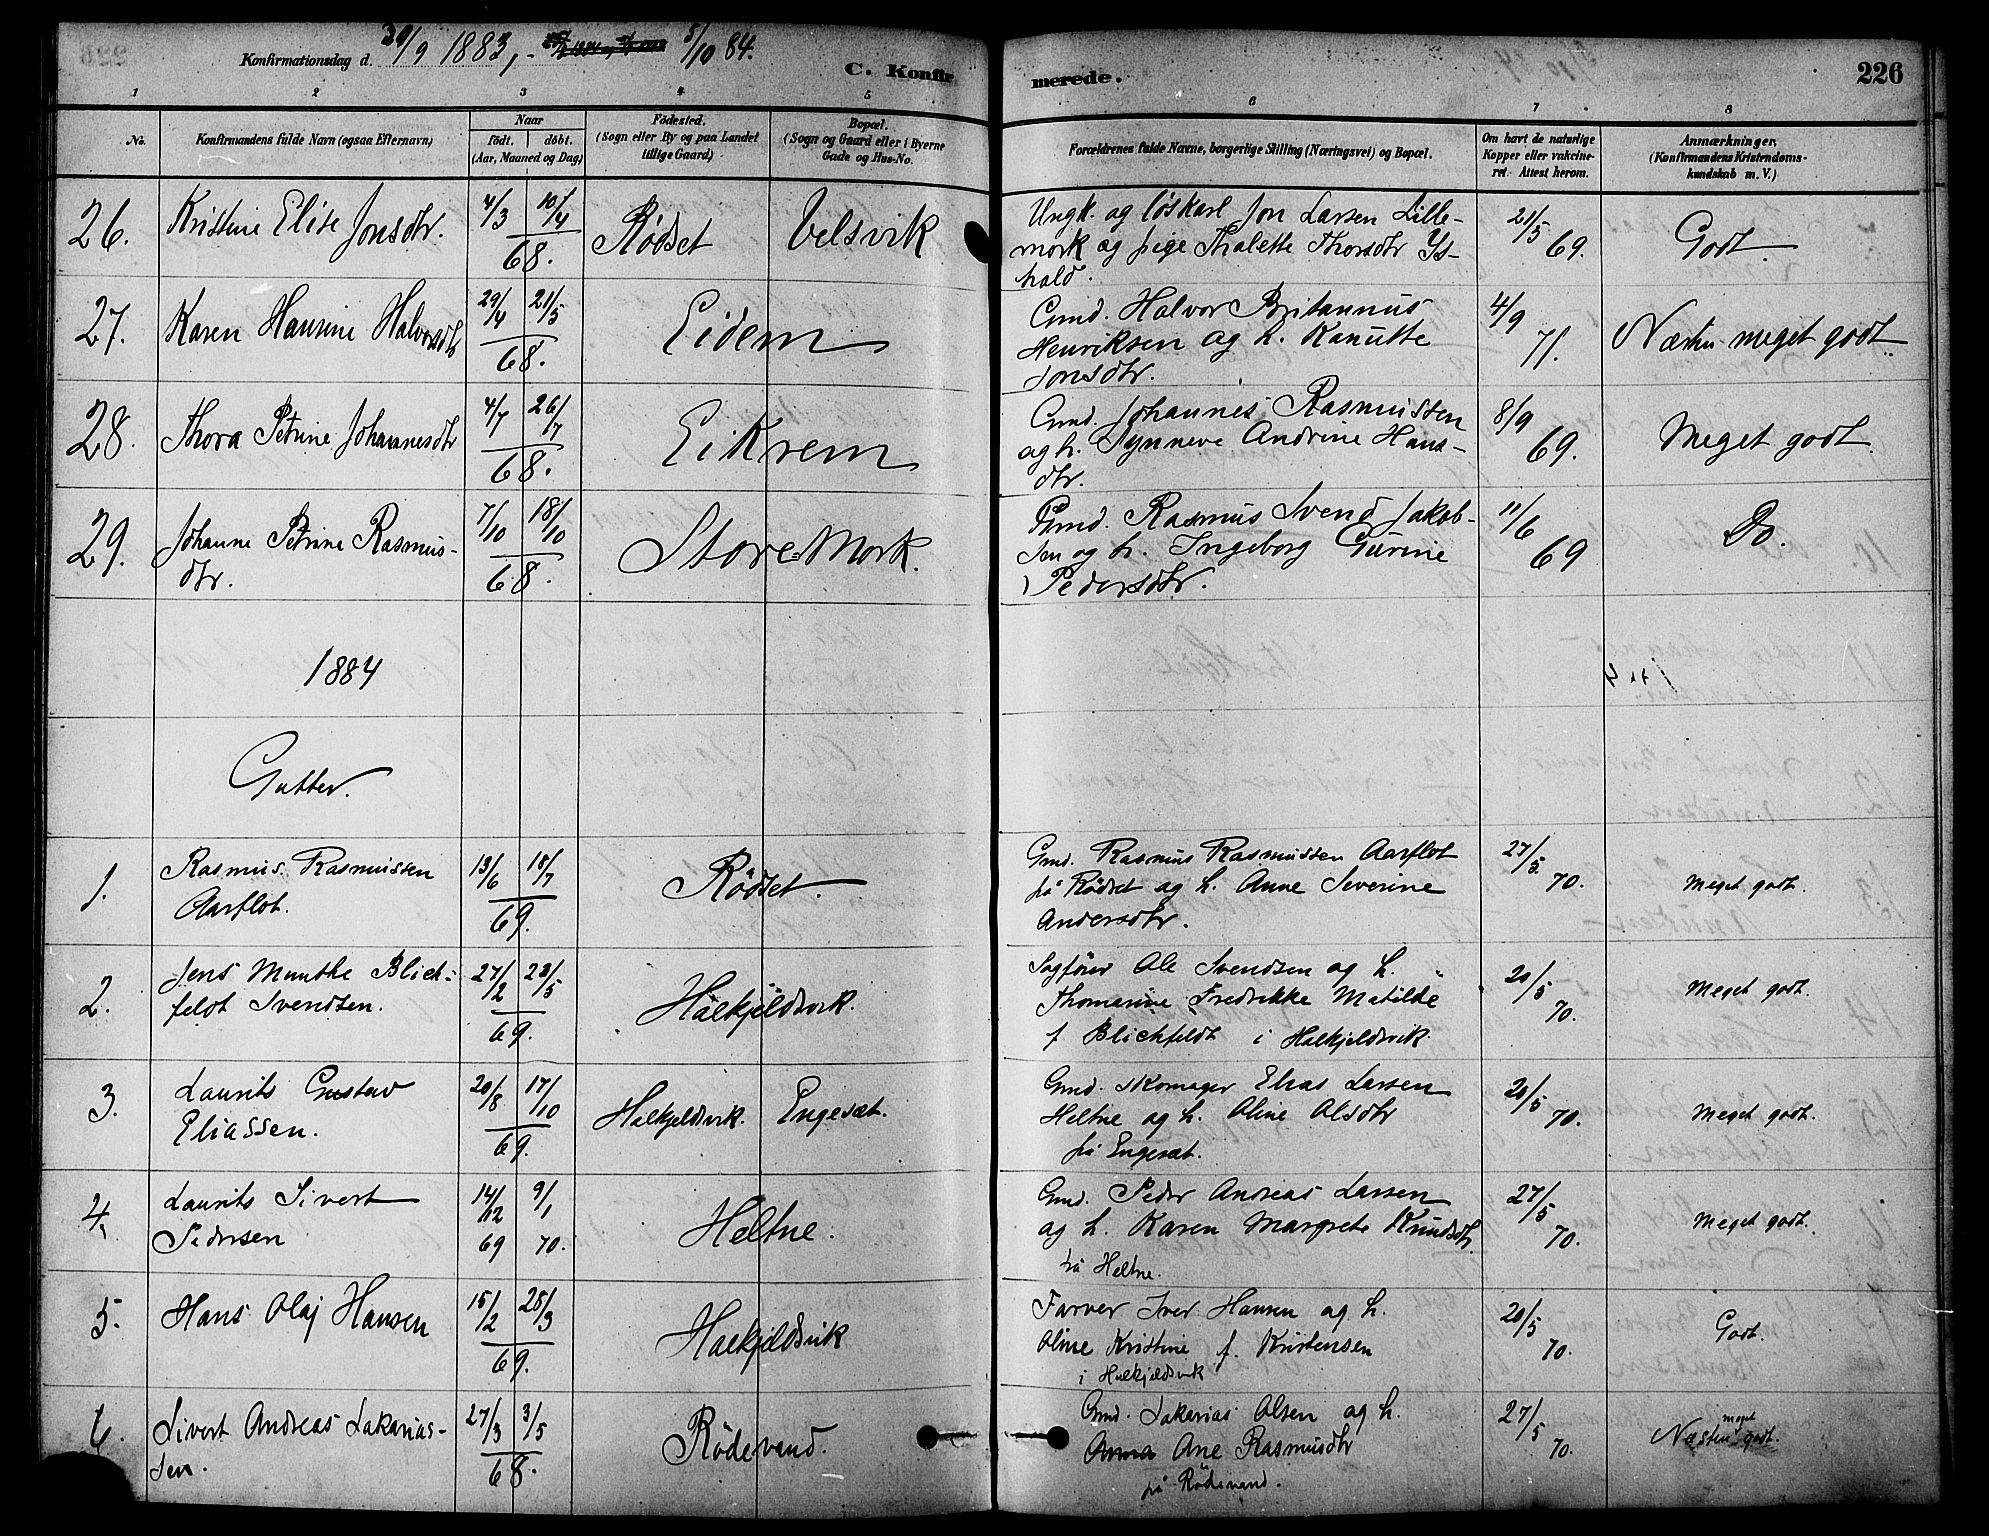 Konfirmationsdag d. 30/9 1883, - 5/10 84.
C. Konfirmerede.
226
1 2 3 4 5 6 7 8
No.
Konfirmandens fulde Navn (ogsaa Efternavn)
Naar
födt. döbt.
(Aar, Maaned og Dag)
Födested.
(Sogn eller By og paa Landet
tillige Gaard)
Bopæl.
(Sogn og Gaard eller i Byerne
Gade og Hus-No.
Forældrenes fulde Navne, borgerlige Stilling (Næringsvei) og Bopæl.
Om havt de naturlige
Kopper eller vakcine-
ret. Attest herom.
Anmærkninger,
(Konfirmandens Kristendoms-
kundskab m. V.)
26. Kristine Elise Jonsdtr. 4/3 10/4 68. Rödset Velsvik
Ungk. og löskarl Jon Larsen Lille-
mork og pige Thalette Thorsdtr Ys-
hald.
21/5 69. Godt.
27. Karen Hansine Halvorsdtr 29/4 21/5 68. Eidem
Gmd. Halvor Britannus
Henriksen og h. Kanutte
Jonsdtr.
4/9 71. Næsten meget godt.
28. Thora Petrine Johannesdtr 4/7 26/7 68. Eikrem
Gmd. Johannes Rasmussen
og h. Synneve Andrine Hans-
dtr.
8/9 69. Meget godt.
29. Johanne Petrine Rasmus-
dtr. 7/10 18/10 68. Store Mork.
Gmd. Rasmus Svend Jakob-
sen og h. Ingeborg Gurine
Pedersdtr.
11/6 69 Do.
1884
Gutter.
1. Rasmus Rasmussen
Aarflot. 13/6 18/7 69. Rödset.
Gmd. Rasmus Rasmussen Aarflot
på Rödset og h. Anne Severine
Andersdtr.
27/5 70. Meget godt.
2. Jens Munthe Blich-
feldt Svendsen. 27/2 23/5 69. Halkjeldsvik.
Sagförer Ole Svendsen og h.
Thomasine Fredrikke Matilde
f Blichfeldt i Halkjeldsvik.
20/5 70. Meget godt.
3. Laurits Gustav
Eliassen. 20/8 17/10 69. Halkjeldsvik. Engesæt.
Gmd. skomager Elias Larsen
Heltne og h. Oline Olsdtr
på Engesæt.
20/5 70. Meget godt.
4. Laurits Sivert
Pedersen 14/12 69 9/1 70. Heltne.
Gmd. Peder Andreas Larsen
og h. Karen Margrete Knudsdtr.
på Heltne.
27/5 70. Meget godt.
5. Hans Olaj Hansen 15/2 25/3 69. Halkjeldsvik
Farver Iver Hansen og h.
Oline Kristine f. Kristensen
i Halkjeldsvik
20/5 70. Godt.
6. Sivert Andreas Sakarias-
sen. 27/3 3/5 68. Rödevand.
Gmd. Sakarias Olsen og h.
Anna Ane Rasmusdtr
på Rödevand.
27/5 70. Næsten meget godt.